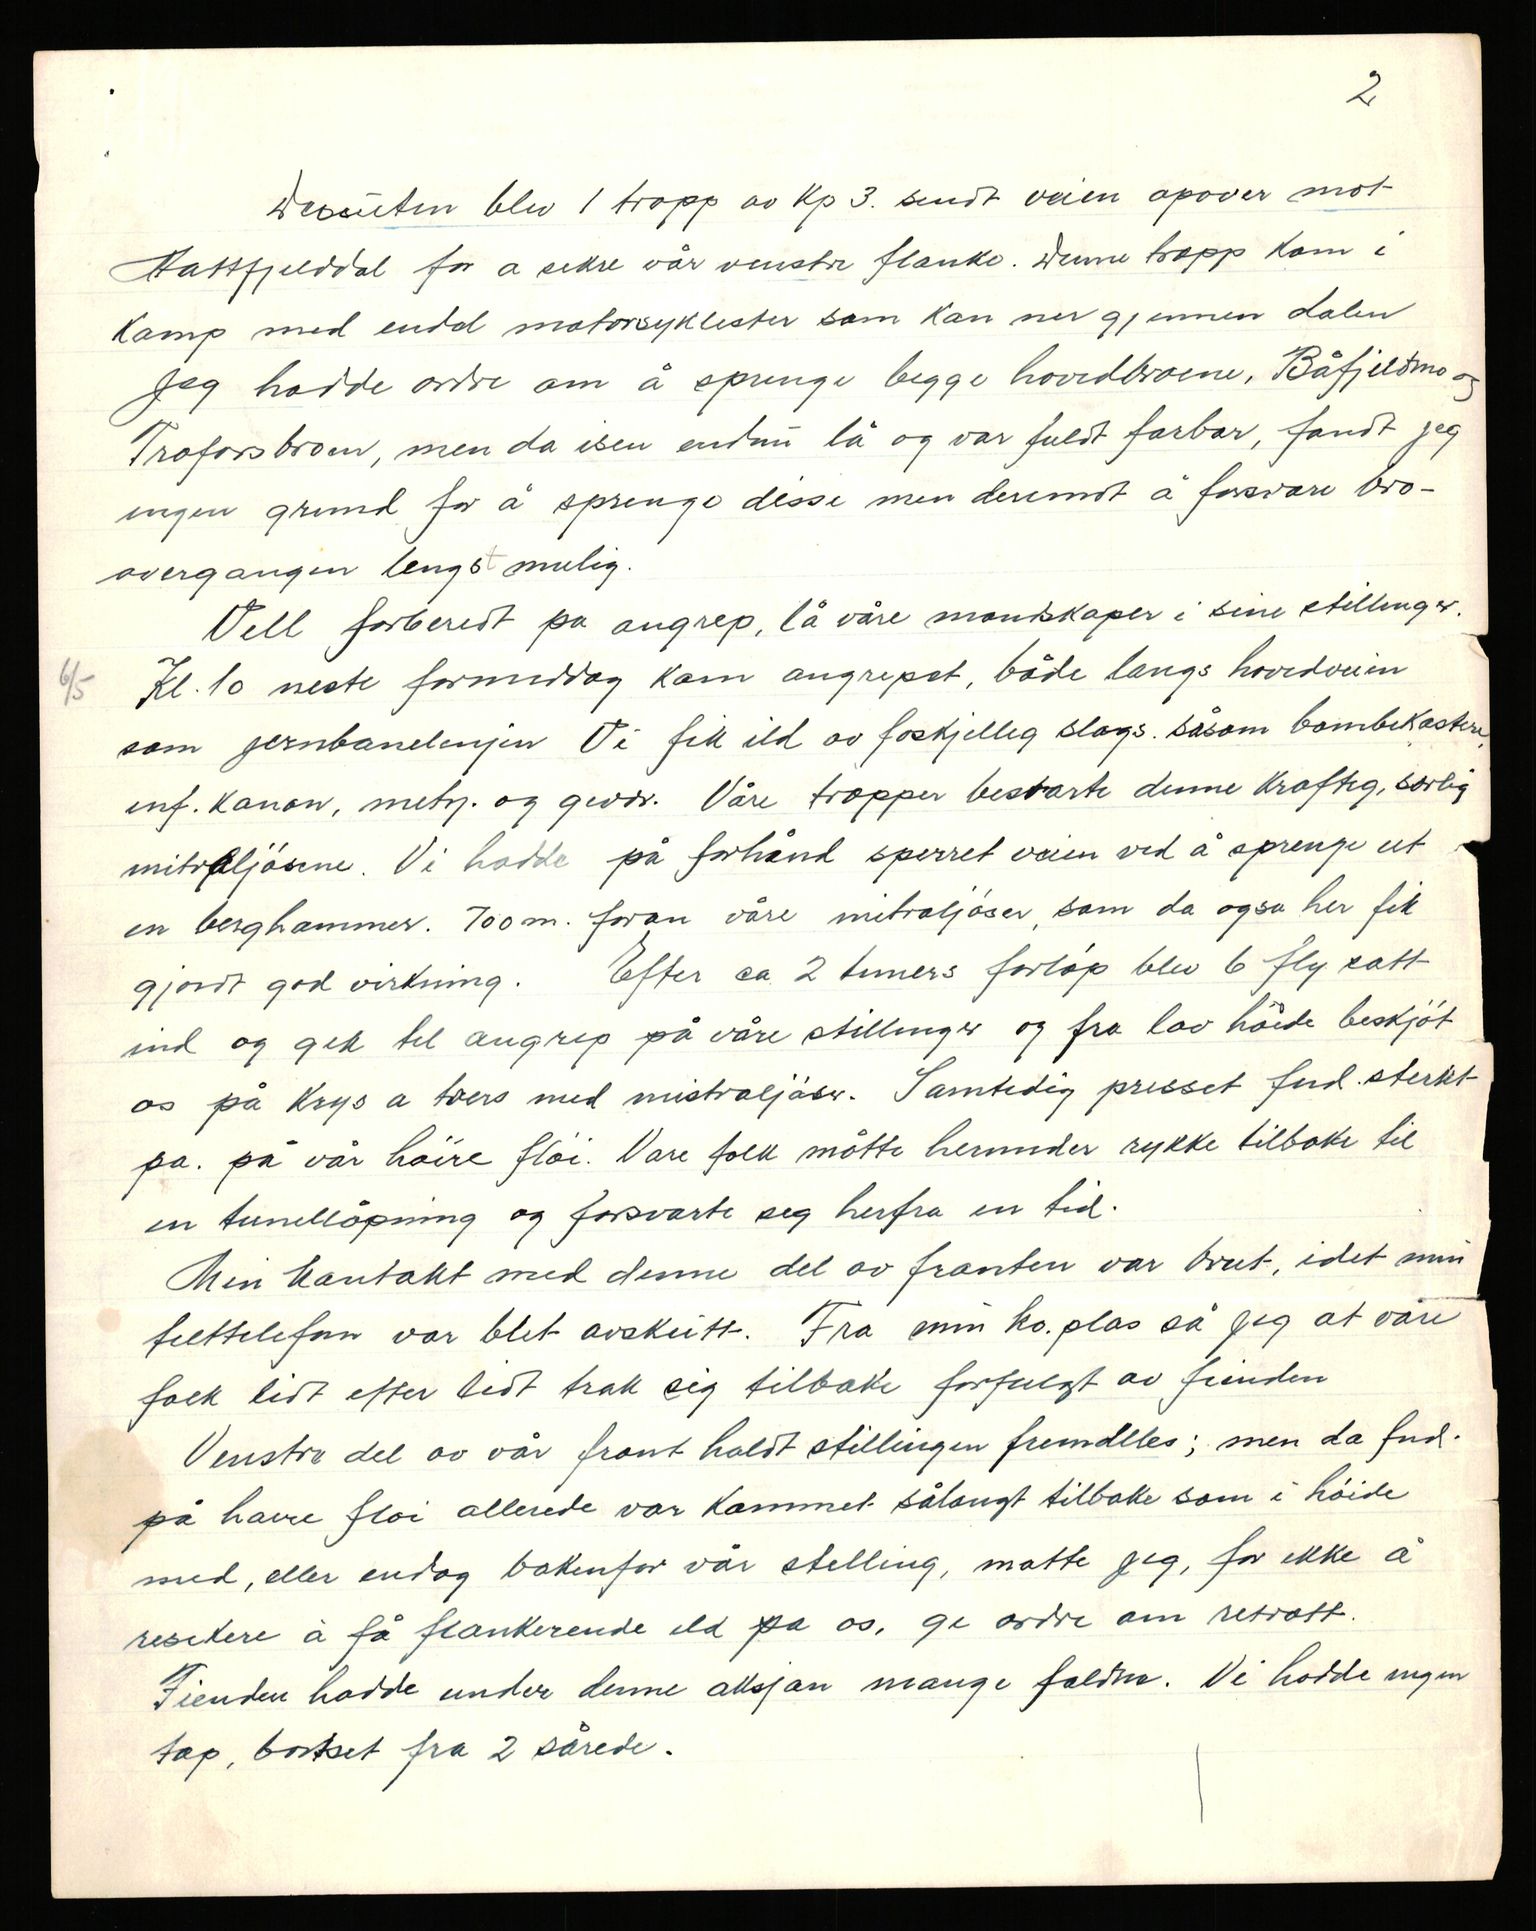 2
Desuten blev 1 tropp av Kp 3. sendt veien opover mot
Hattfjelddal for a sikre vår venstre flanke. Denne tropp kom i
kamp med endel motorsyklister som kan ner gjennen dalen
Jeg hadde ordre om å sprenge begge hovedbroene, Båfjeldmo og
Troforsbroen, men da isen endnu lå og var fuldt farbar, fandt jeg
ingen grund for å sprenge disse men derimot å forsvare bro-
overgangen lengst mulig.
Vell forberedt pa angrep, lå våre mandskaper i sine stillinger.
6/5 Kl. 10 neste formiddag kom angrepet, både langs hovedveien
som jernbanelinjen Vi fik ild av foskjellig slags. såsom bombekastere,
inf. kanon, mitr. og gevær. Våre tropper besvarte denne kraftig, særlig
mitraljøsene. Vi hadde på forhånd sperret veien ved å sprenge ut
en berghammer. 700 m. foran våre mitraljøser, som da ogsa her fik
gjordt god virkning. Efter ca 2 timers forløp blev 6 fly satt
ind og gik til angrep på våre stillinger og fra lav høide beskjøt
os på kryss a tvers med mistraljøser. Samtidig presset fnd. sterkt
pa. på vår høire fløi. Vare folk måtte herunder rykke tilbake til
en tunellåpning og forsvarte seg herfra en tid.
Min kontakt med denne del av fronten var brut, idet min
felttelefon var blit avskutt. Fra min ko.plas så jeg at våre
folk lidt efter lidt trak sig tilbake forfulgt av fienden
Venstre del av vår front holdt stillingen fremdeles; men da fnd.
på høire fløi allerede var kommet sålangt tilbake som i høide
med, eller endog bakenfor vår stilling, matte jeg, for ikke å
resikere å få flankerende ild pa os, gi ordre om retrætt.
Fienden hadde under denne aksjon mange faldne. Vi hadde ingen
tap, bortset fra 2 sårede.